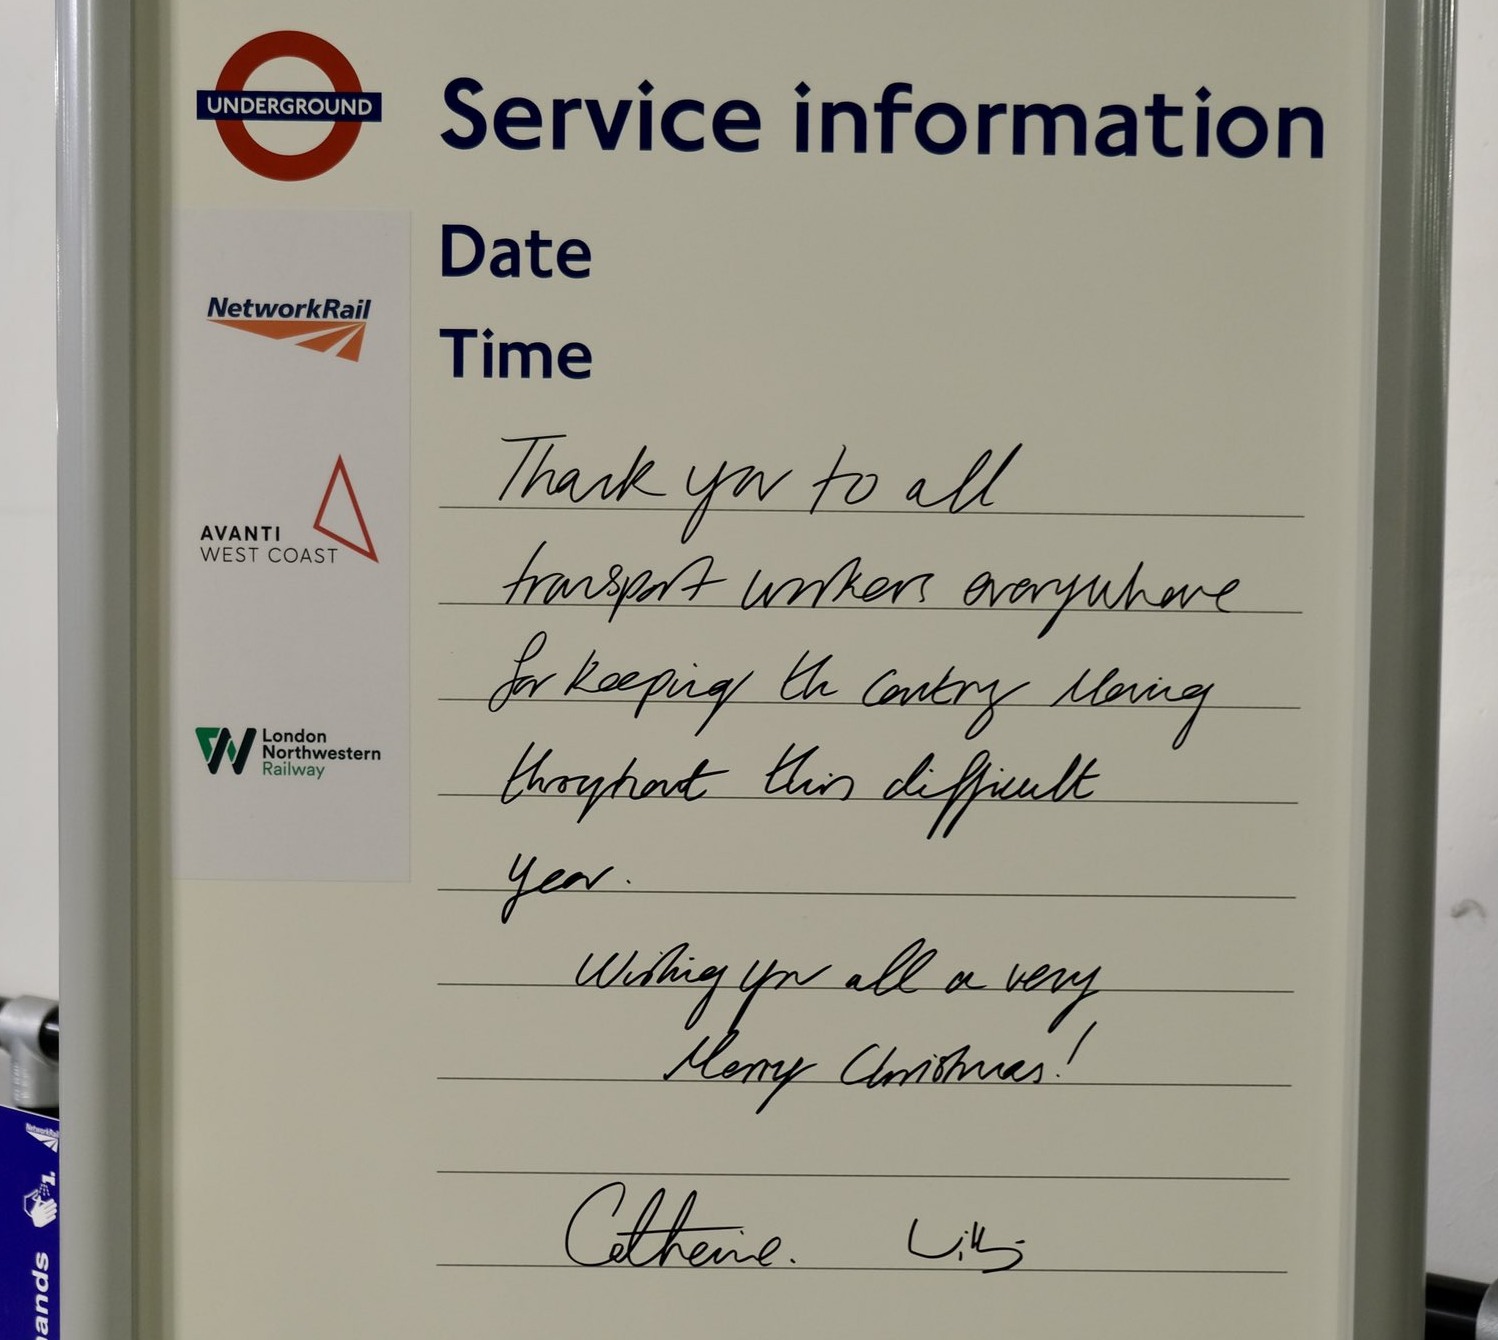 UNDERGROUND
Service information
Date
Time
NetworkRail
AVANTI
WEST COAST
London
Northwestern
Railway
Thank you to all
transport workers everywhere
for keeping the country Moving
throughout this difficult
year.
Wishing you all a very
Merry Christmas!
Catherine.
NetworkRail
1.
ands